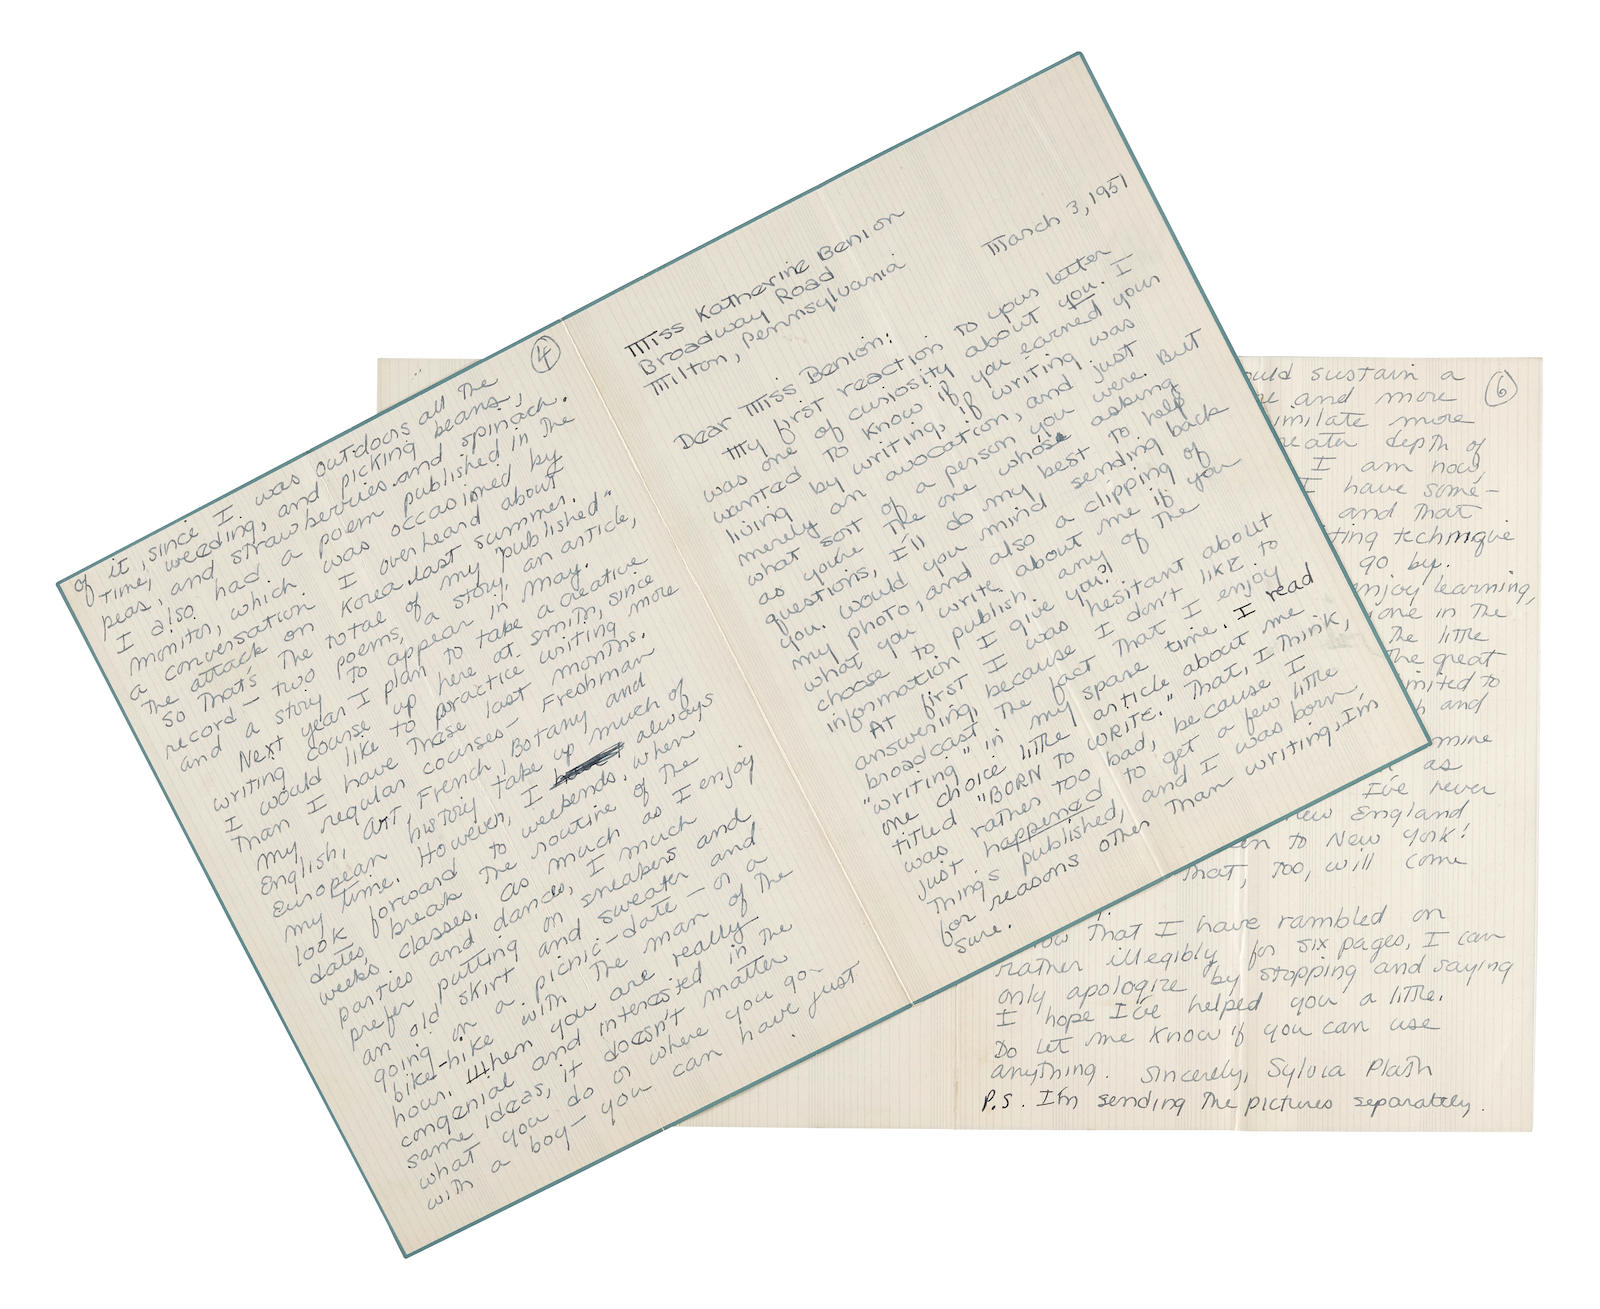 Miss Katherine Benion
Broadway Road
Milton, Pennsylvania
March 3, 1951
Dear Miss Benion:
My first reaction to your letter
was one of curiosity about you. I
wanted to know if you earned your
living by writing, if writing was
merely an avocation, and just
what sort of a person you were. But
as you're the one whose asking
questions, I'll do my best to help
you. Would you mind sending back
my photo, and also a clipping of
what you write about me if you
choose to publish any of the
information I give you?
At first I was hesitant about
answering, because I don't like to
broadcast the fact that I enjoy
"writing" in my spare time. I read
one choice little article about me
titled "BORN TO WRITE." That, I think,
was rather too bad, because I
just happened to get a few little
things published, and I was born,
for reasons other than writing, I'm
sure.
4
of it, since I was outdoors all the
time, weeding, and picking beans,
peas, and strawberries and spinach.
I also had a poem published in the
monitor, which was occasioned by
a conversation I overheard about
the attack on Korea last summer.
So that's the total of my "published"
record - two poems, a story, an article,
and a story to appear in may.
Next year I plan to take a creative
writing course up here at smith, since
I would like to practice writing more
than I have these last months.
my regular courses - Freshman
English, art, French, Botany and
European history take up much of
my time. However, I always
look forward to weekends, when
dates, break the routine of the
week's classes. as much as I enjoy
parties and dances, I much
prefer putting on sneakers and
an old skirt and sweater and
going on a picnic-date - or a
bike-hike with the man of the
hour. When you are really
congenial and interested in the
same ideas, it doesn't matter
what you do or where you go
with a boy - you can have just
6
sustain a
and more
more
depth of
I am now,
I have some-
and that
technique
go by.
enjoy learning,
in the
the little
the great
to
and
mine
as
I've never
New England
to New York!
that, too, will come
that I have rambled on
rather illegibly for six pages, I can
only apologize by stopping and saying
I hope I've helped you a little.
Do let me know if you can use
anything. Sincerely, Sylvia Plath
P.S. I'm sending the pictures separately.